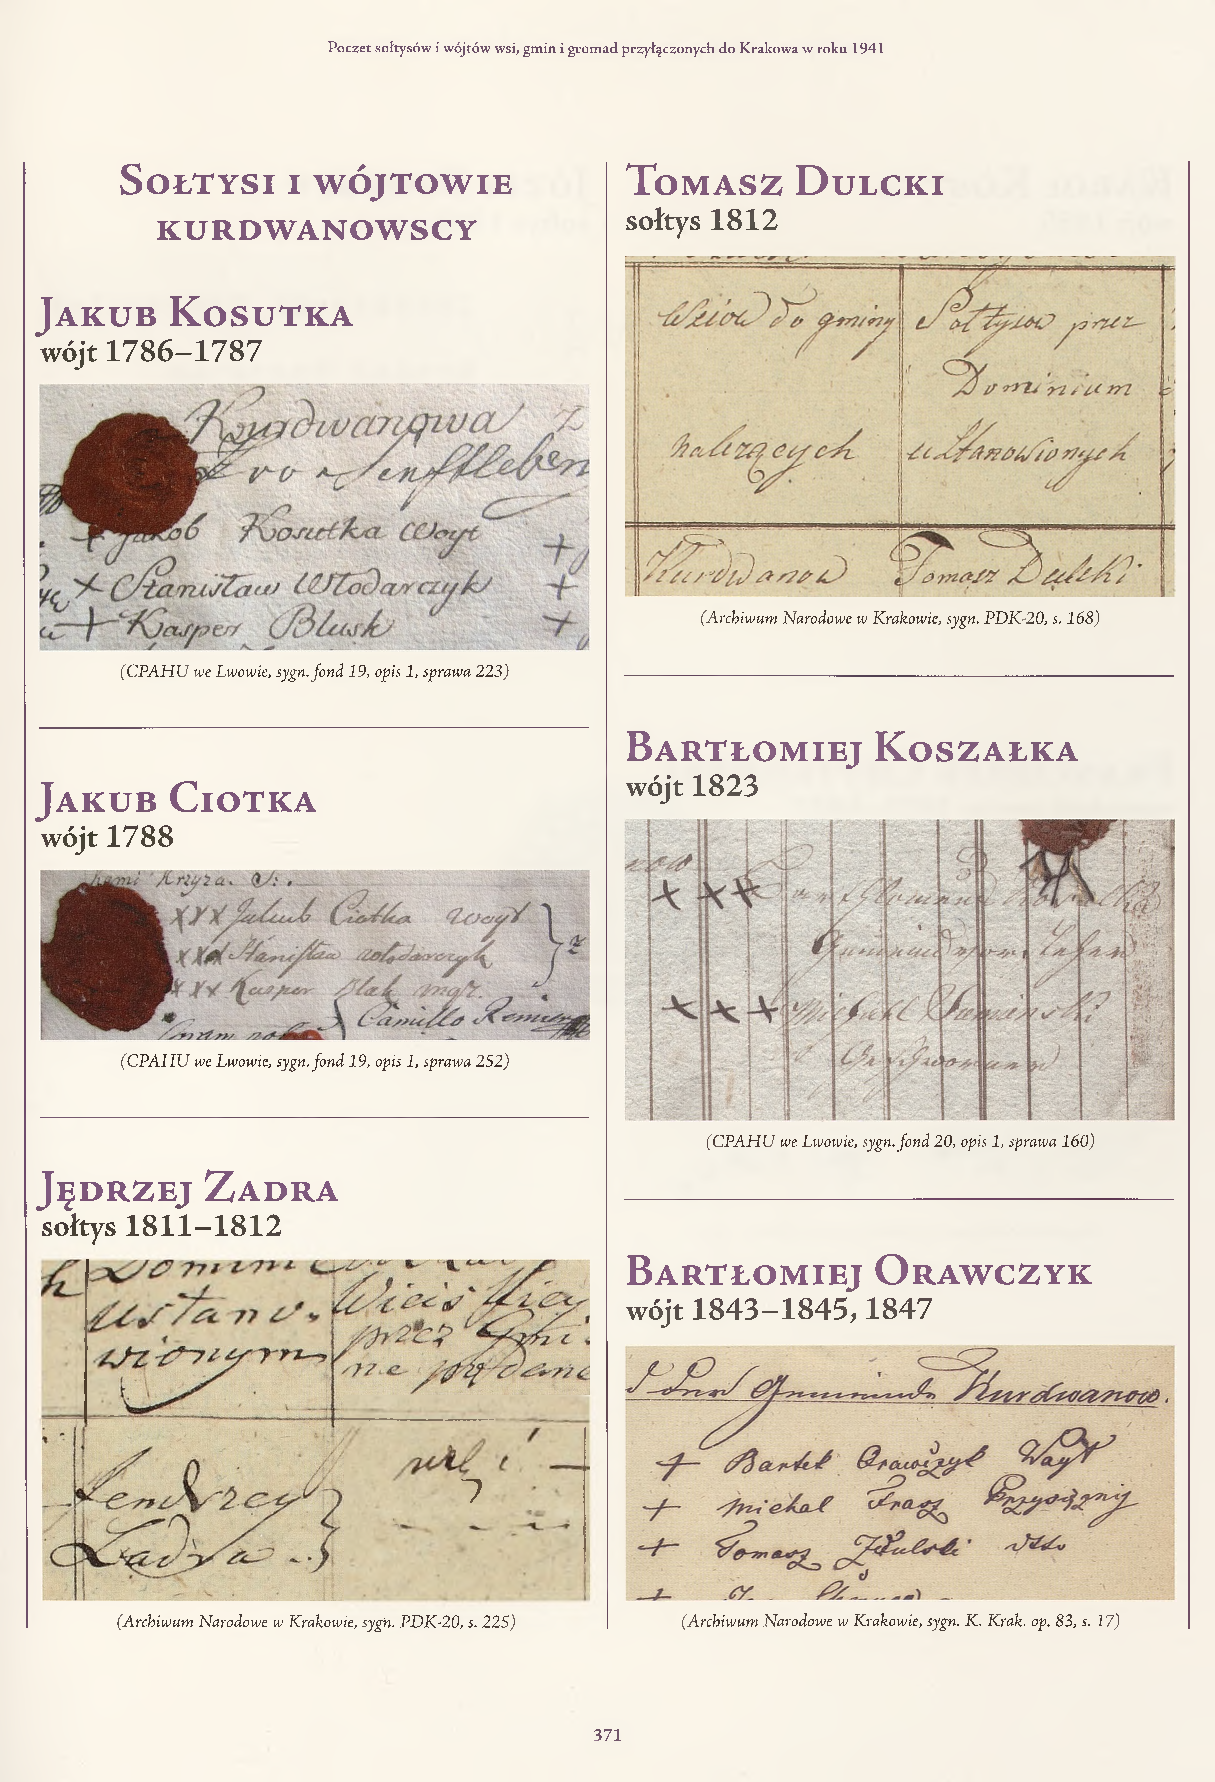 Poczet sołtysów i wójtów wsi, gmin i gromad przyłączonych do Krakowa w roku 1941
Sołtysi i wójtowie
kurdwanowscy
Jakub Kosutka
wójt 1786–1787
Kurdwanowa
Jakob Kosutka Woyt
+ Stanisław Włodarczyk +
+ Kasper Blusk +
(CPAHU we Lwowie, sygn. fond 19, opis 1, sprawa 223)
Jakub Ciotka
wójt 1788
Krzyza.
xxx Jakub Ciotka woyt
xxx
xxx Kasper
Camillo
(CPAHU we Lwowie, sygn. fond 19, opis 1, sprawa 252)
Jędrzej Zadra
sołtys 1811–1812
ustano-
wionym
przez Gmi-
ne podane
Jendrzey
Zadra
(Archiwum Narodowe w Krakowie, sygn. PDK-20, s. 225)
Tomasz Dulcki
sołtys 1812
Wsiów do gminy Sołtysow przez
Dominium
nalezących ustanowionych
Kurdwanow Tomasz Dulcki
(Archiwum Narodowe w Krakowie, sygn. PDK-20, s. 168)
Bartłomiej Koszałka
wójt 1823
+ + +
+ + + Michael
(CPAHU we Lwowie, sygn. fond 20, opis 1, sprawa 160)
Bartłomiej Orawczyk
wójt 1843–1845, 1847
der Gemeinde Kurdwanow.
+ Bartek Orawczyk Wayt
+ Michal Frasz Przysiężnij
+ Tomasz
(Archiwum Narodowe w Krakowie, sygn. K. Krak. op. 83, s. 17)
371